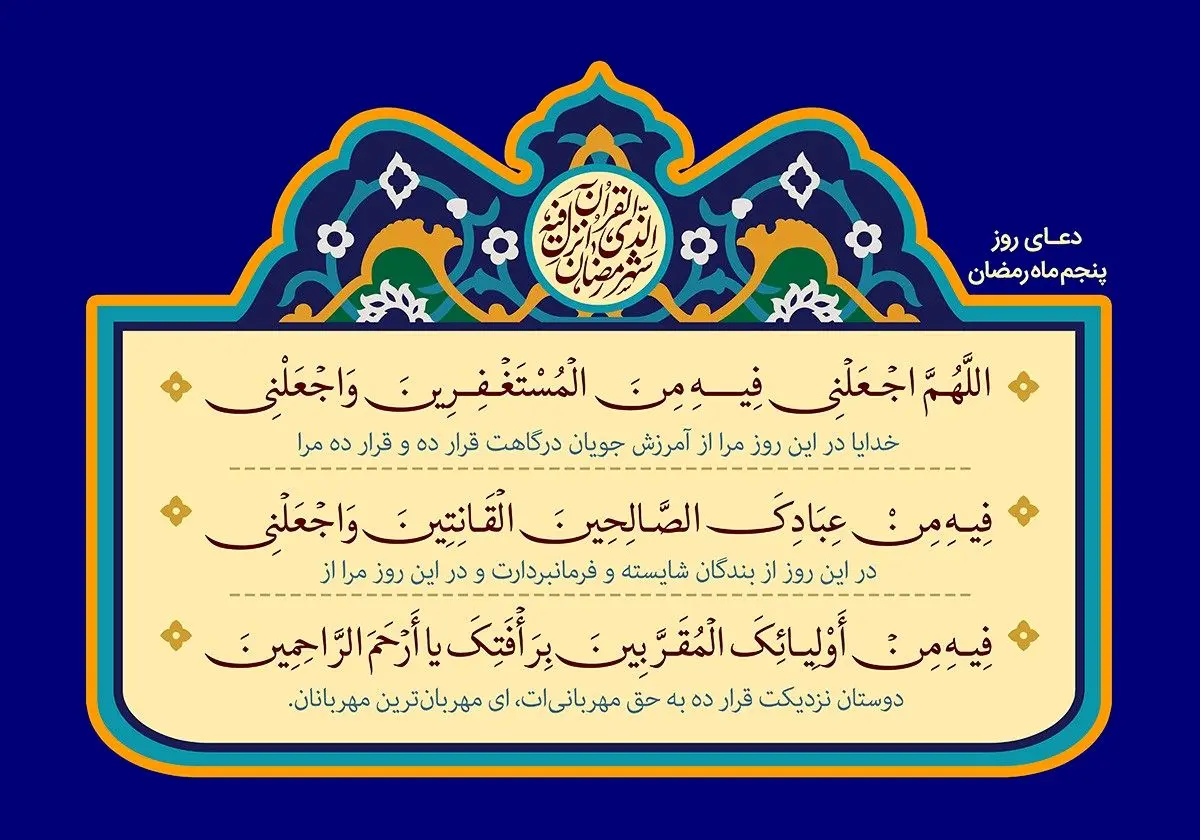 شهر رمضان الذی انزل فیه القرآن
دعای روز
پنجم ماه رمضان
اللَّهُمَّ اجْعَلْنِی فِیهِ مِنَ الْمُسْتَغْفِرِینَ وَاجْعَلْنِی
خدایا در این روز مرا از آمرزش جویان درگاهت قرار ده و قرار ده مرا
فِیهِ مِنْ عِبَادِکَ الصَّالِحِینَ الْقَانِتِینَ وَاجْعَلْنِی
در این روز از بندگان شایسته و فرمانبردارت و در این روز مرا از
فِیهِ مِنْ أَوْلِیَائِکَ الْمُقَرَّبِینَ بِرَأْفَتِکَ یا أَرْحَمَ الرَّاحِمِینَ
دوستان نزدیکت قرار ده به حق مهربانی‌ات، ای مهربان‌ترین مهربانان.